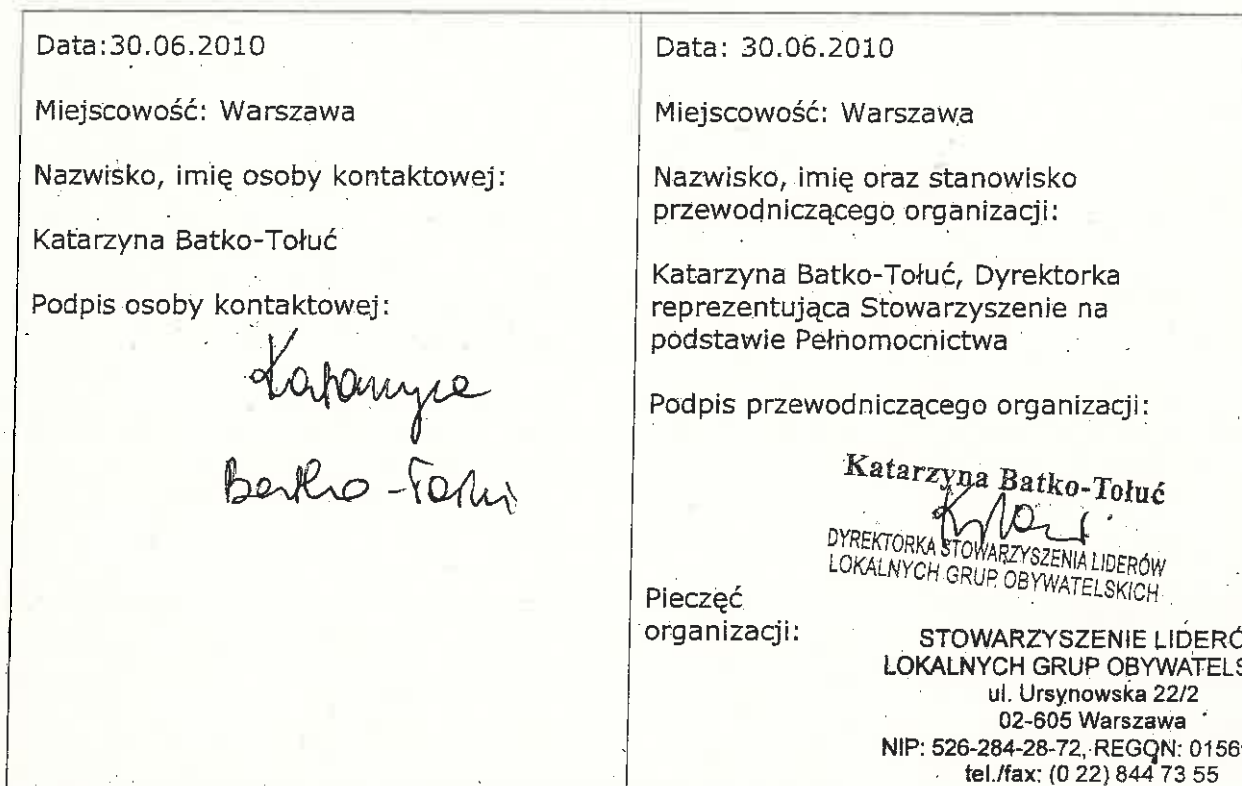 Data:30.06.2010
Miejscowość: Warszawa
Nazwisko, imię osoby kontaktowej:
Katarzyna Batko-Tołuć
Podpis osoby kontaktowej:
Katarzyna
Batko-Tołuć
Data: 30.06.2010
Miejscowość: Warszawa
Nazwisko, imię oraz stanowisko
przewodniczącego organizacji:
Katarzyna Batko-Tołuć, Dyrektorka
reprezentująca Stowarzyszenie na
podstawie Pełnomocnictwa
Podpis przewodniczącego organizacji:
Katarzyna Batko-Tołuć
DYREKTORKA STOWARZYSZENIA LIDERÓW
LOKALNYCH GRUP OBYWATELSKICH
Pieczęć
organizacji:
STOWARZYSZENIE LIDERÓ
LOKALNYCH GRUP OBYWATELS
ul. Ursynowska 22/2
02-605 Warszawa
NIP: 526-284-28-72, REGON: 0156
tel./fax: (0 22) 844 73 55